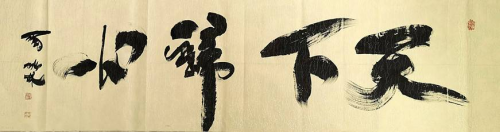 天下歸心